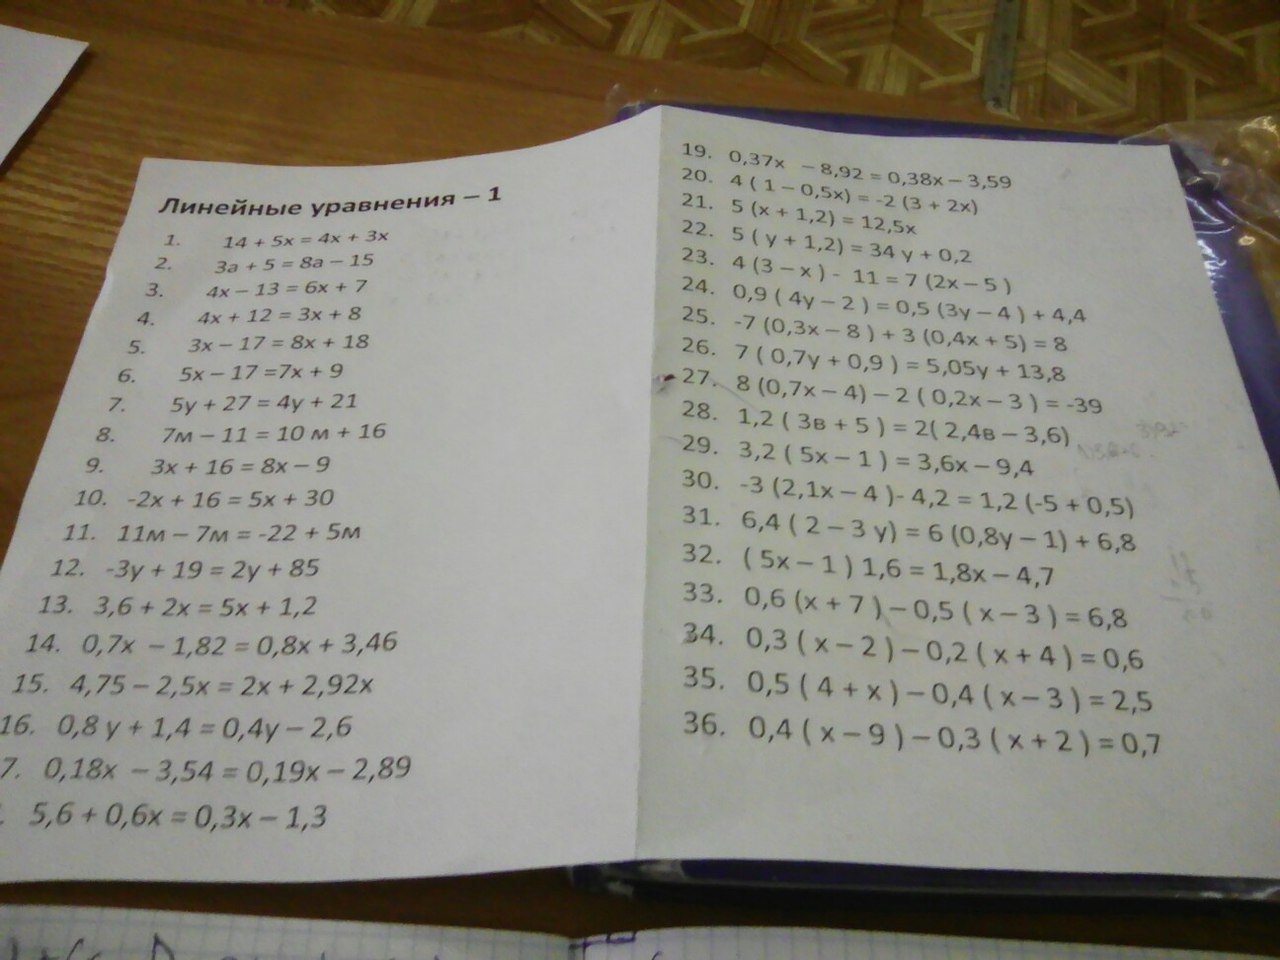 Линейные уравнения – 1
1. 14 + 5х = 4х + 3х
2. 3а + 5 = 8а – 15
3. 4х – 13 = 6х + 7
4. 4х + 12 = 3х + 8
5. 3х – 17 = 8х + 18
6. 5х – 17 =7х + 9
7. 5у + 27 = 4у + 21
8. 7м – 11 = 10 м + 16
9. 3х + 16 = 8х – 9
10. -2х + 16 = 5х + 30
11. 11м – 7м = -22 + 5м
12. -3у + 19 = 2у + 85
13. 3,6 + 2х = 5х + 1,2
14. 0,7х – 1,82 = 0,8х + 3,46
15. 4,75 – 2,5х = 2х + 2,92х
16. 0,8 у + 1,4 = 0,4у – 2,6
7. 0,18х – 3,54 = 0,19х – 2,89
. 5,6 + 0,6х = 0,3х – 1,3
19. 0,37х – 8,92 = 0,38х – 3,59
20. 4 ( 1 – 0,5х) = -2 (3 + 2х)
21. 5 (х + 1,2) = 12,5х
22. 5 ( у + 1,2) = 34 у + 0,2
23. 4 (3 – х ) - 11 = 7 (2х – 5 )
24. 0,9 ( 4у – 2 ) = 0,5 (3у – 4 ) + 4,4
25. -7 (0,3х – 8 ) + 3 (0,4х + 5) = 8
26. 7 ( 0,7у + 0,9 ) = 5,05у + 13,8
27. 8 (0,7х – 4) – 2 ( 0,2х – 3 ) = -39
28. 1,2 ( 3в + 5 ) = 2( 2,4в – 3,6)
29. 3,2 ( 5х – 1 ) = 3,6х – 9,4
30. -3 (2,1х – 4 )- 4,2 = 1,2 (-5 + 0,5)
31. 6,4 ( 2 – 3 у) = 6 (0,8у – 1) + 6,8
32. ( 5х – 1 ) 1,6 = 1,8х – 4,7
33. 0,6 (х + 7 ) – 0,5 ( х – 3 ) = 6,8
34. 0,3 ( х – 2 ) – 0,2 ( х + 4 ) = 0,6
35. 0,5 ( 4 + х ) – 0,4 ( х – 3 ) = 2,5
36. 0,4 ( х – 9 ) – 0,3 ( х + 2 ) = 0,7